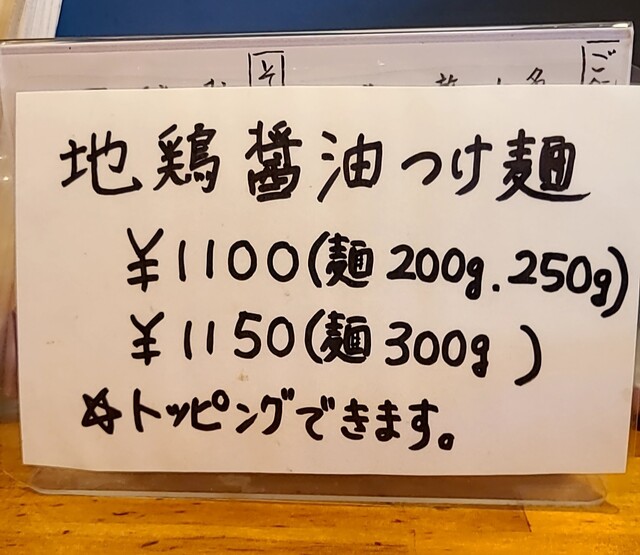 地鶏醤油つけ麺
¥1100(麺200g.250g)
¥1150(麺300g)
☆トッピングできます。